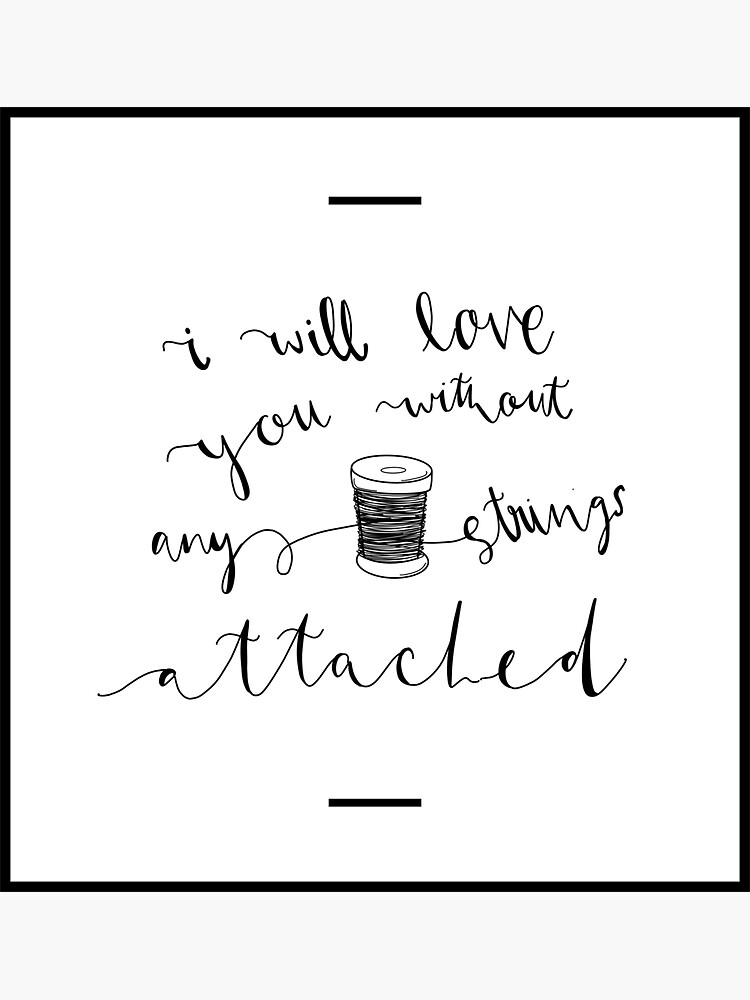 i will love
you without
any strings
attached